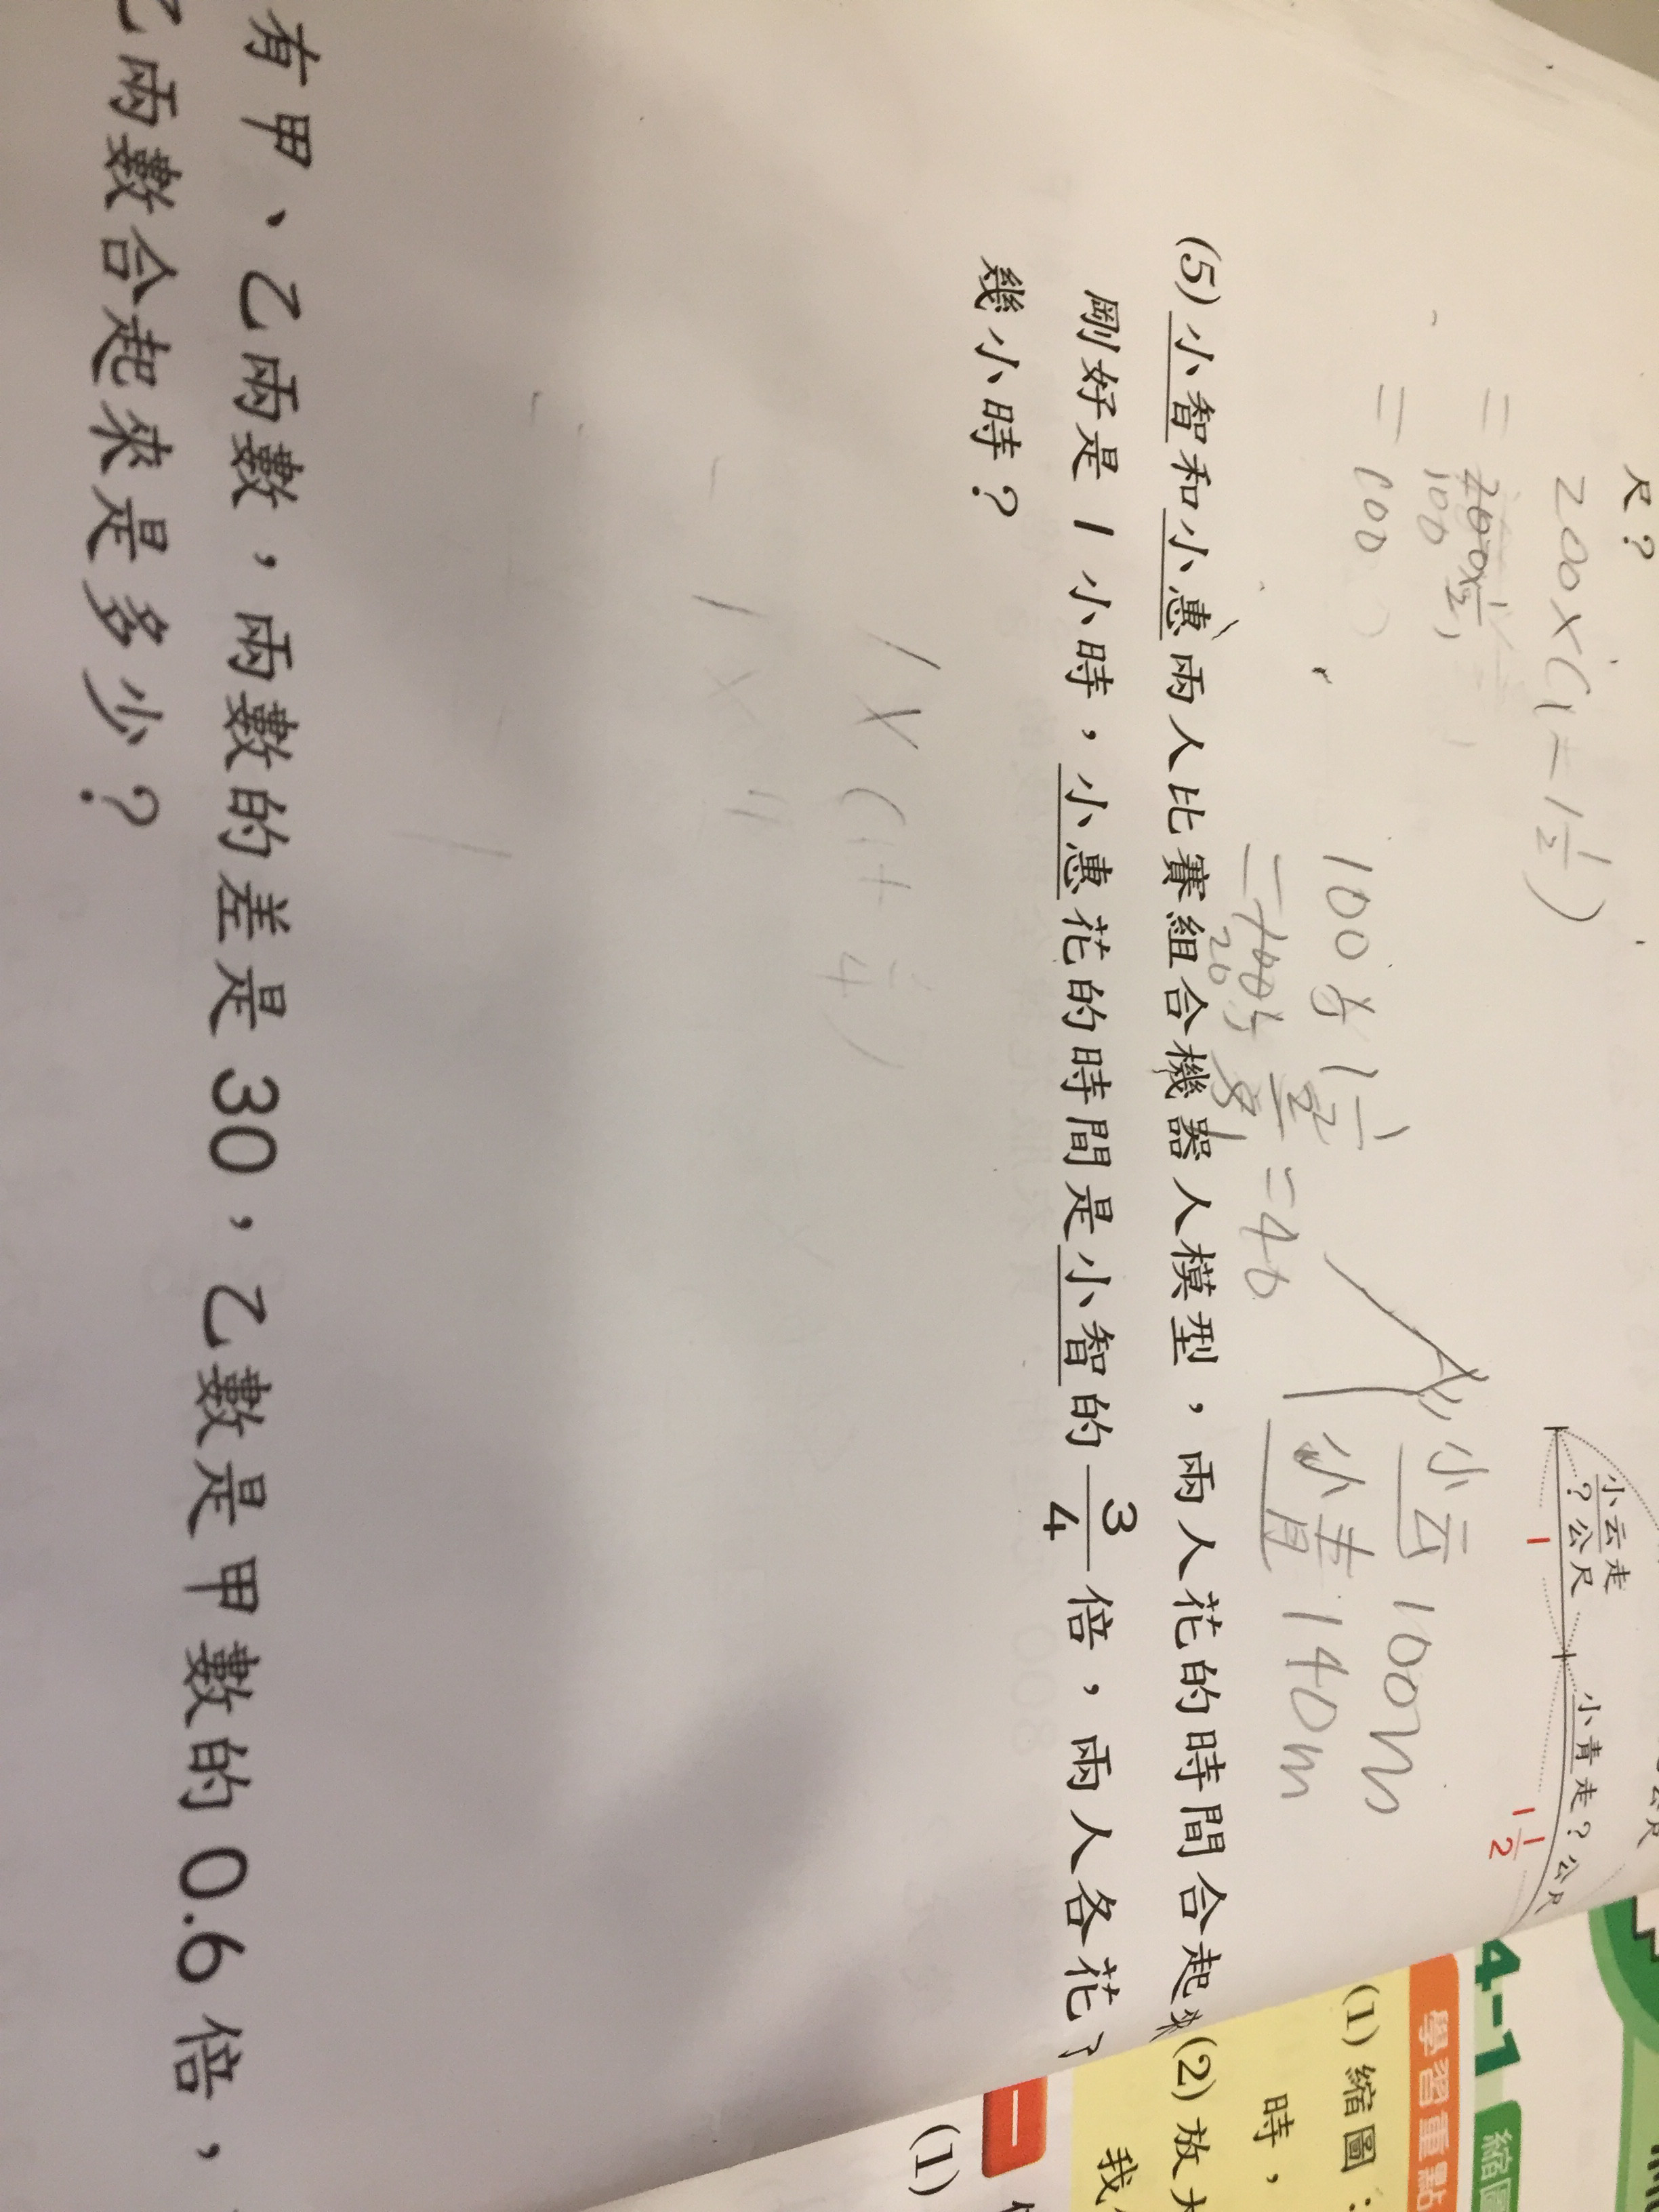 尺？
200×(1-1½)
100
=100
100÷1
=40
小云走
？公尺
1
小青走？公尺
1½
小云 100m
小青 140m
(5)小智和小惠兩人比賽組合機器人模型，兩人花的時間合起來
剛好是1小時，小惠花的時間是小智的3/4倍，兩人各花了
幾小時？
有甲、乙兩數，兩數的差是30，乙數是甲數的0.6倍，
乙兩數合起來是多少？
4-1 縮圖
學習重點
(1)縮圖：
時，
(2)放大
我
一
(1)